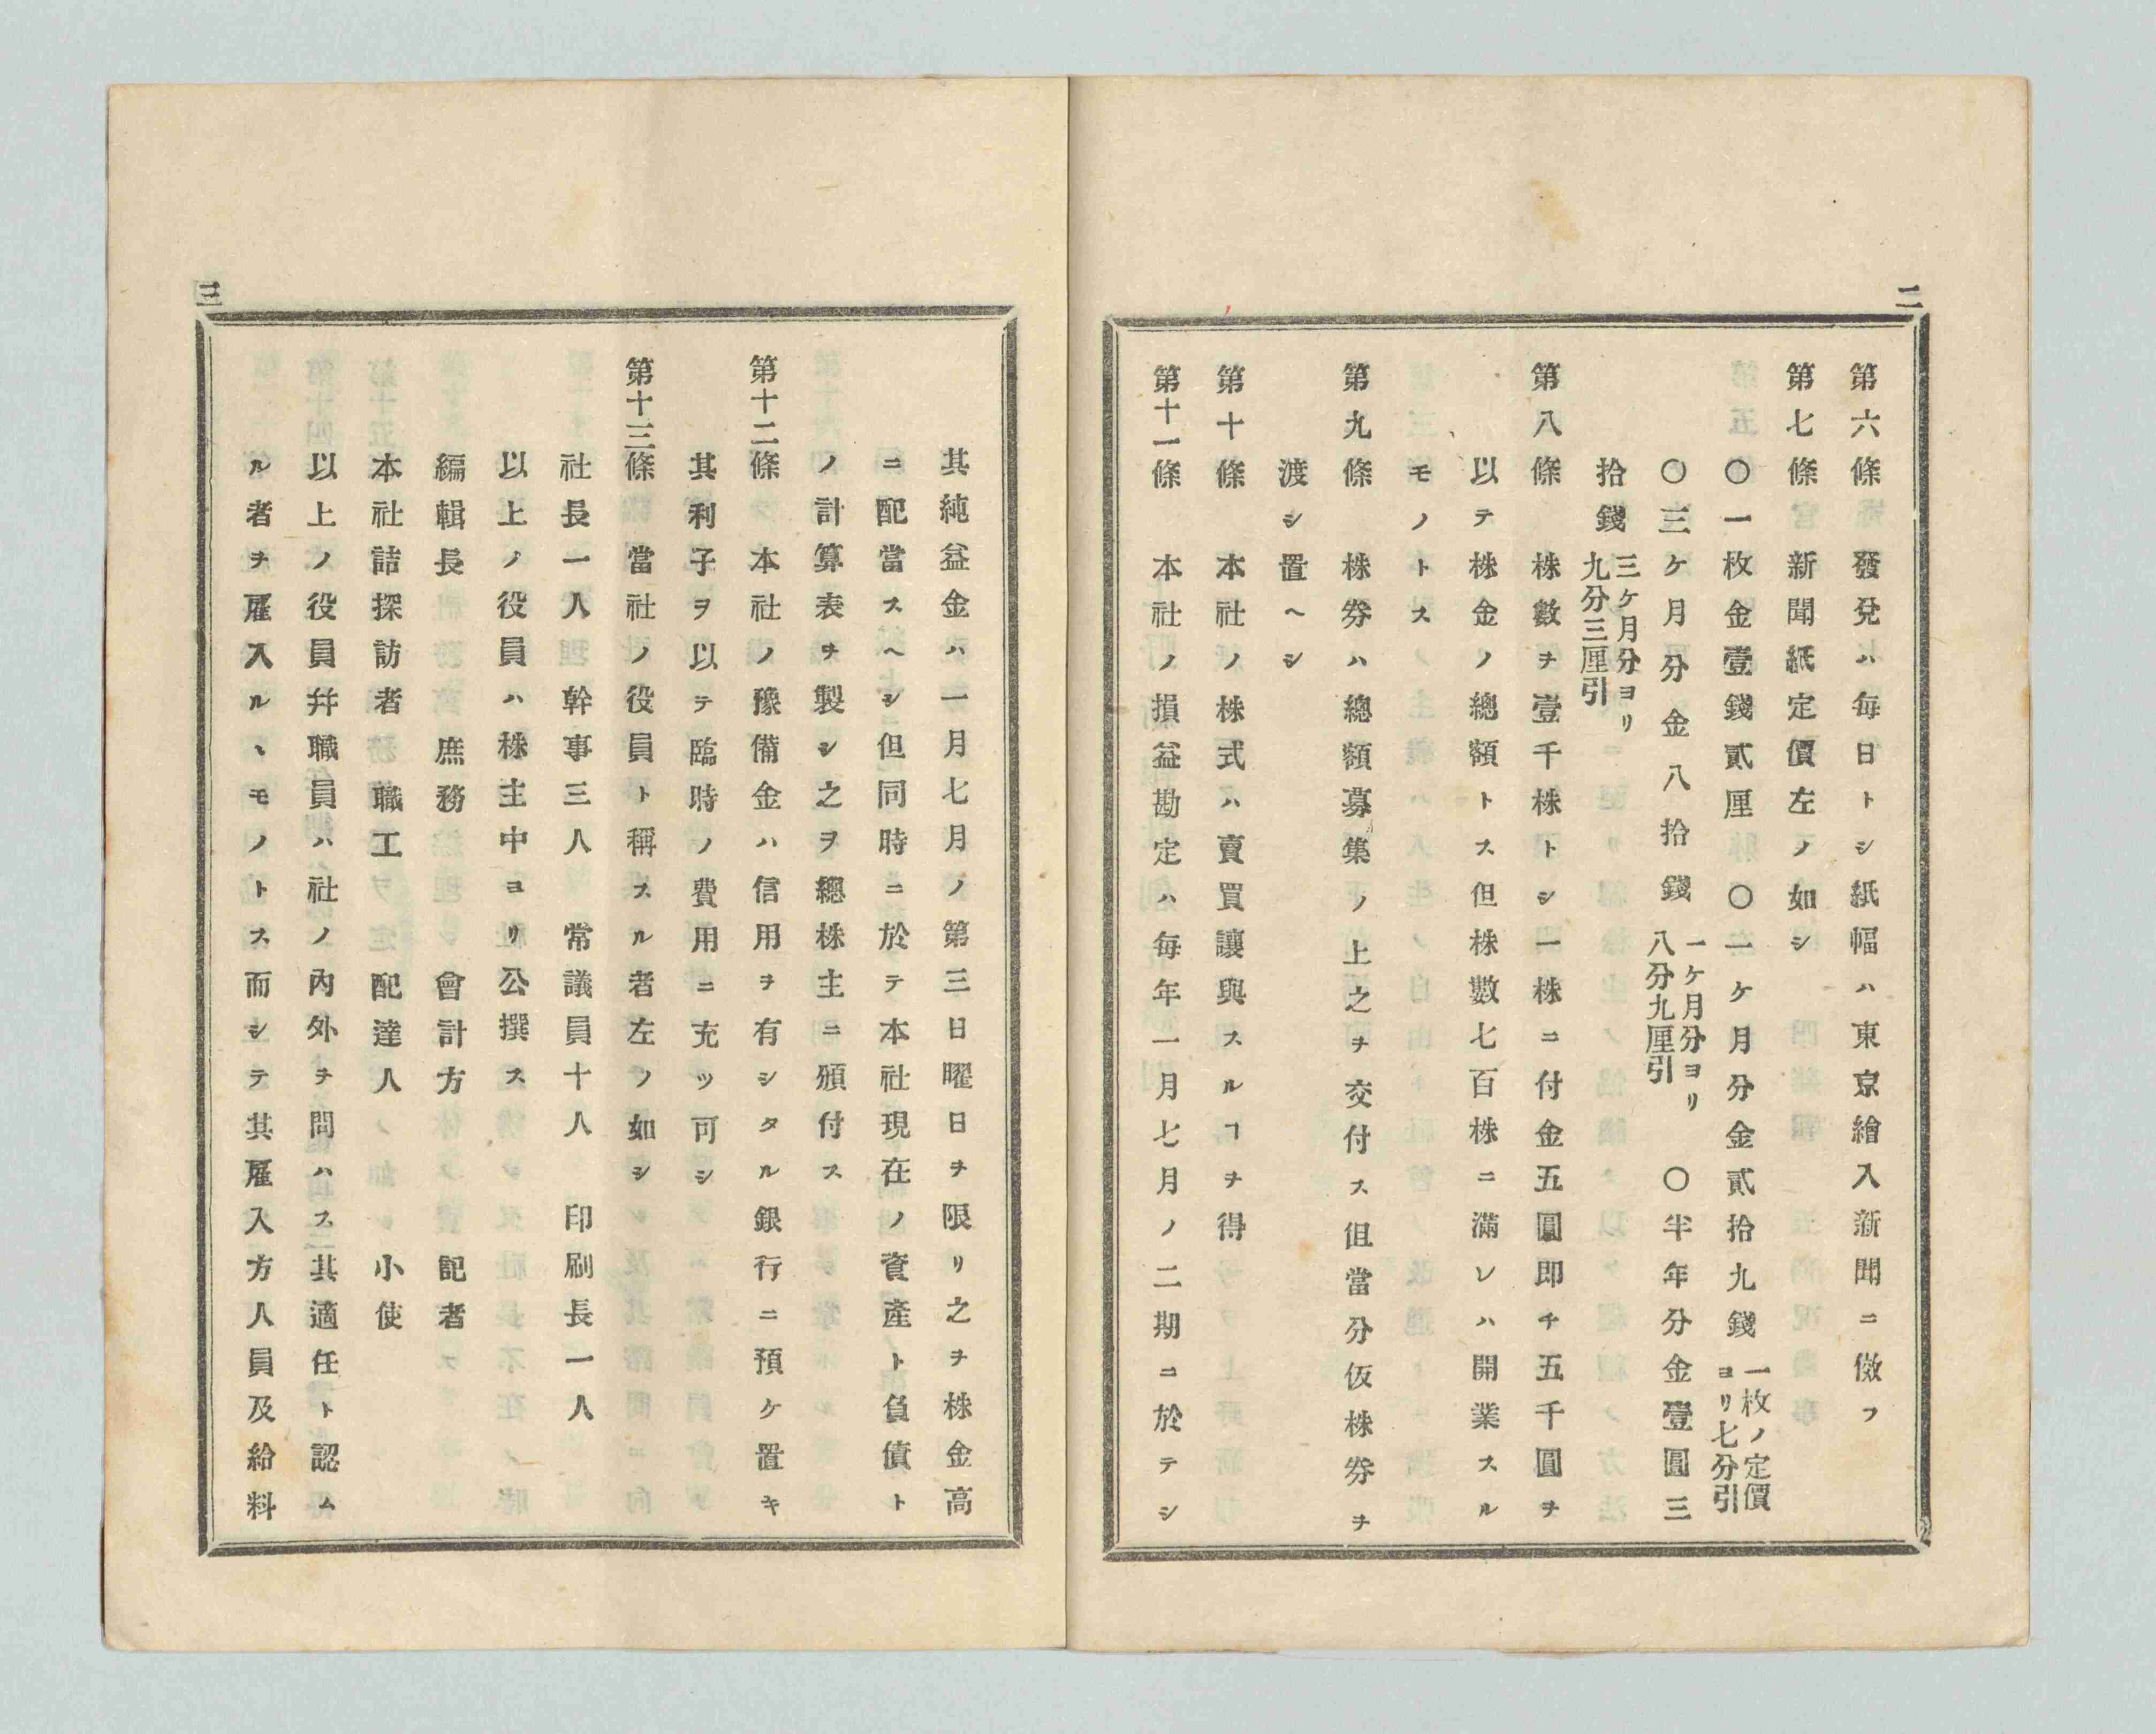 二
第六條　發兌ハ每日トシ紙幅ハ東京繪入新聞ニ傚フ
第七條　新聞紙定價左ノ如シ
〇一枚金壹錢貳厘　〇一ケ月分金貳拾九錢　一枚ノ定價ヨリ七分引
〇三ケ月分金八拾錢　一ケ月分ヨリ八分九厘引　〇半年分金壹圓三
拾錢　三ケ月分ヨリ九分三厘引
第八條　株數ヲ壹千株トシ一株ニ付金五圓即チ五千圓ヲ
以テ株金ノ總額トス但株數七百株ニ滿レハ開業スル
モノトス
第九條　株券ハ總額募集ノ上之ヲ交付ス但當分仮株券ヲ
渡シ置ヘシ
第十條　本社ノ株式ハ賣買讓與スルヿヲ得
第十一條　本社ノ損益勘定ハ每年一月七月ノ二期ニ於テシ
三
其純益金ハ一月七月ノ第三日曜日ヲ限リ之ヲ株金高
ニ配當スヘシ但同時ニ於テ本社現在ノ資產ト負債ト
ノ計算表ヲ製シ之ヲ總株主ニ頒付ス
第十二條　本社ノ豫備金ハ信用ヲ有シタル銀行ニ預ケ置キ
其利子ヲ以テ臨時ノ費用ニ充ツ可シ
第十三條　當社ノ役員ト稱スル者左ノ如シ
社長一人　幹事三人　常議員十人　印刷長一人
以上ノ役員ハ株主中ヨリ公撰ス
編輯長　庶務　會計方　記者
本社詰探訪者　職工　配達人　小使
以上ノ役員幷職員ハ社ノ內外ヲ問ハス其適任ト認ム
ル者ヲ雇入ルヽモノトス而シテ其雇入方人員及給料